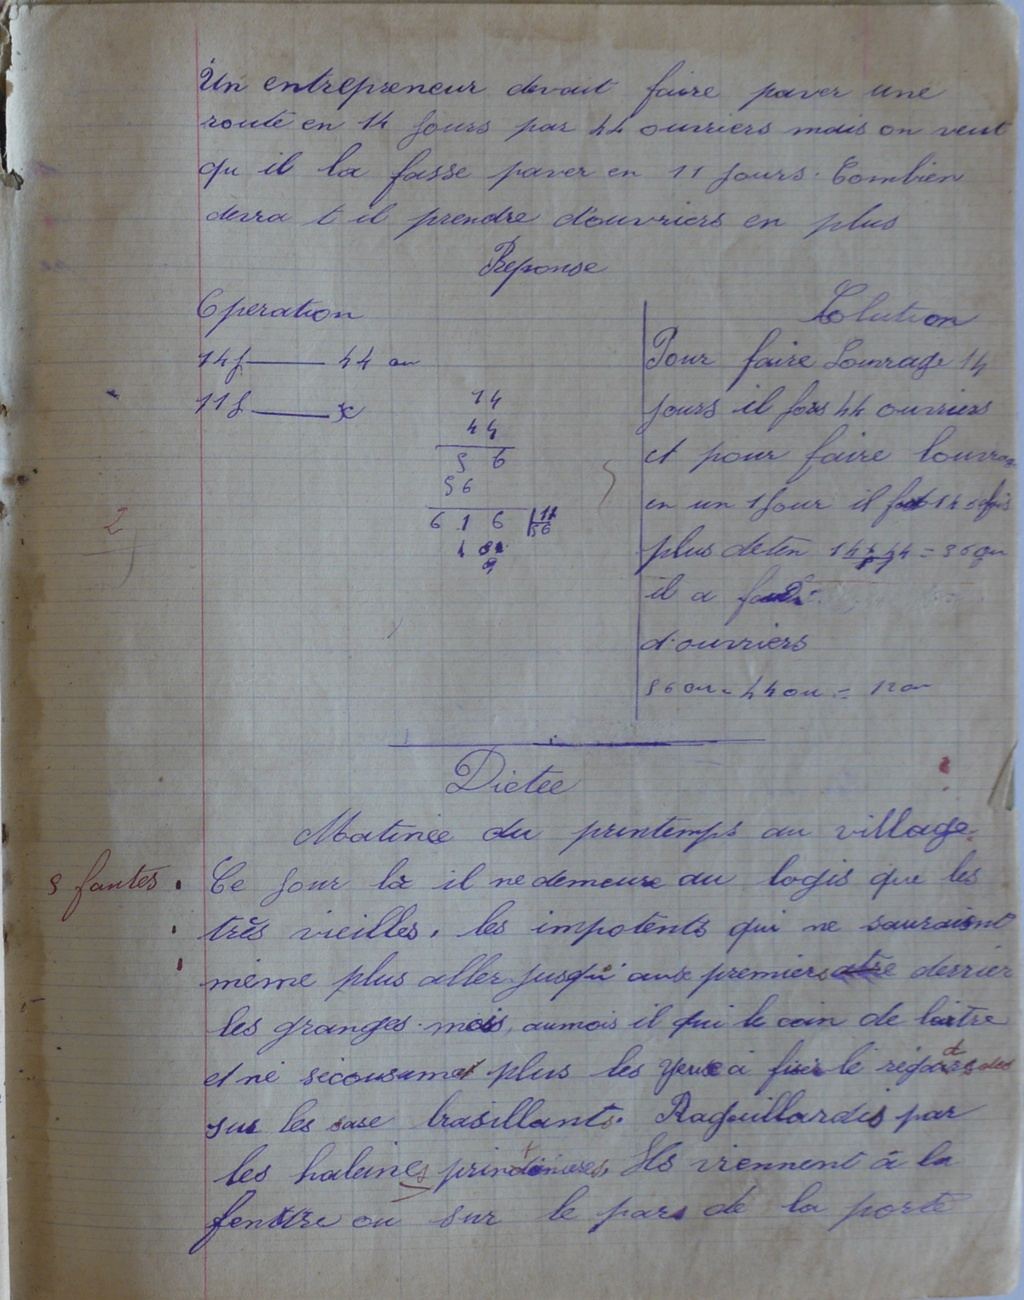 Un entrepreneur devait faire paver une
route en 14 jours par 44 ouvriers mais on veut
qu il la fasse paver en 11 jours. Combien
devra t il prendre d'ouvriers en plus
Reponse
Operation
14j 44 ou
11j x
14
44
56
56
616 11
56
Solution
Pour faire Louvrage 14
jours il 44 ouvriers
et pour faire louvrage
en un 1 jour il 14 fois
plus 14 x 44 = 56 ou
il a
d'ouvriers
56 ou - 44 ou = 12 ou
2
Dictee
Matinée du printemps au village.
5 fautes.
Ce jour là il ne demeure au logis que les
très vieilles, les impotents qui ne sauraient
même plus aller jusqu' aux premiers derrier
les granges mais, aumois il qui le coin de
et ne plus les yeux à le
sur les brasillants. Ragaillardis par
les haleines printanières. Ils viennent à la
fenêtre ou sur le pars de la porte